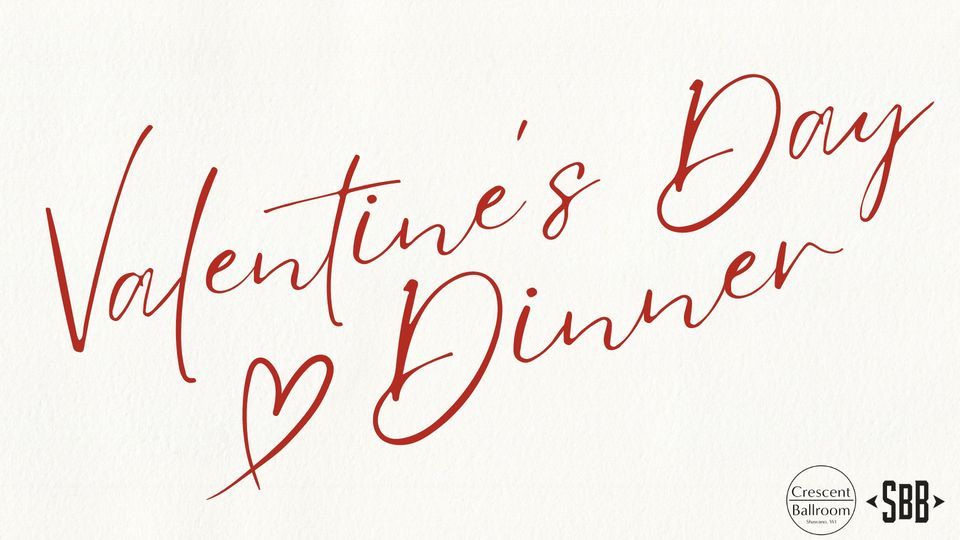 Valentine's Day
Dinner
Crescent
Ballroom
Shawano, WI
SBB